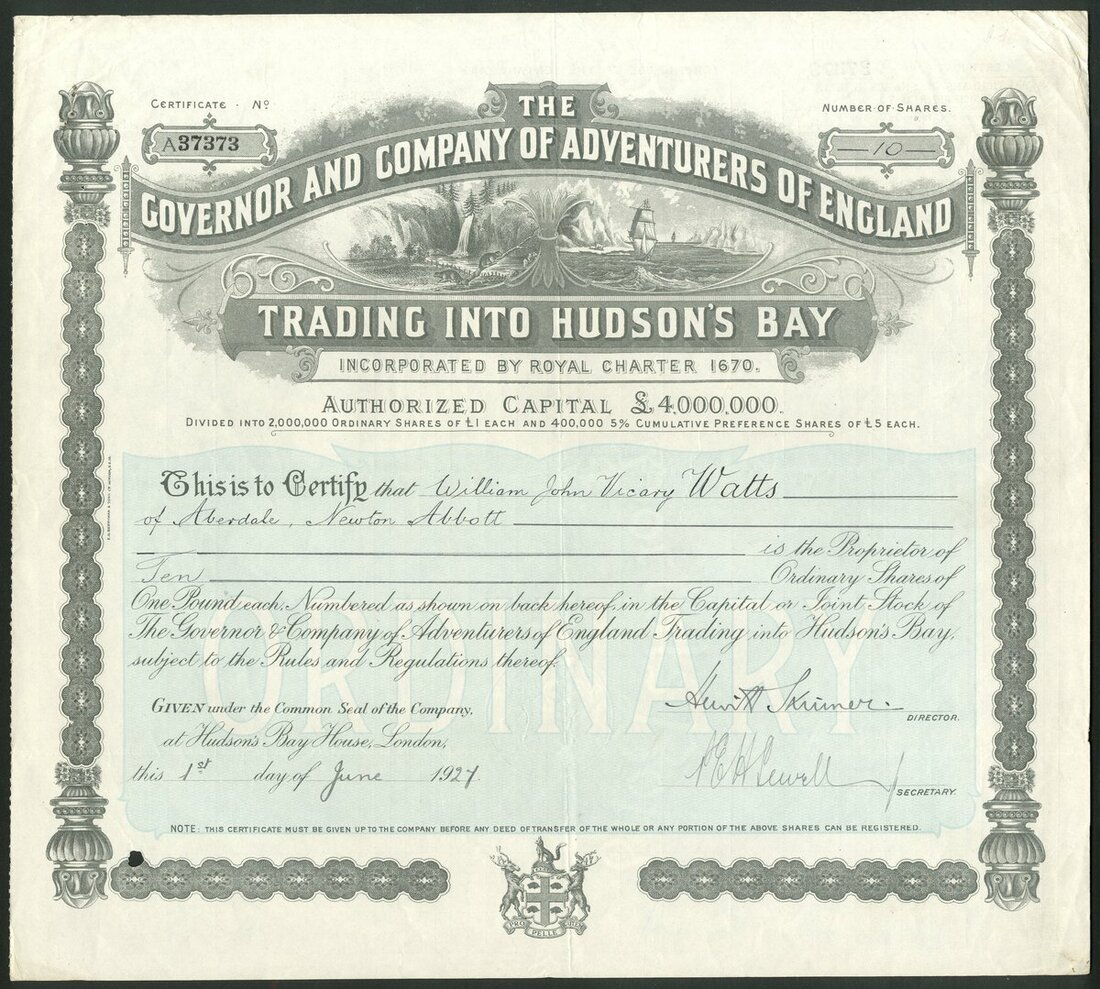 CERTIFICATE · Nº
A37373
NUMBER OF SHARES.
—10—
THE
GOVERNOR AND COMPANY OF ADVENTURERS OF ENGLAND
TRADING INTO HUDSON'S BAY
INCORPORATED BY ROYAL CHARTER 1670.
AUTHORIZED CAPITAL £4,000,000.
DIVIDED INTO 2,000,000 ORDINARY SHARES OF £1 EACH AND 400,000 5% CUMULATIVE PREFERENCE SHARES OF £5 EACH.
This is to Certify that William John Vicary Watts
of Aberdale, Newton Abbott
is the Proprietor of
Ten Ordinary Shares of
One Pound each, Numbered as shown on back hereof, in the Capital or Joint Stock of
The Governor & Company of Adventurers of England Trading into Hudson's Bay,
subject to the Rules and Regulations thereof.
ORDINARY
GIVEN under the Common Seal of the Company,
DIRECTOR.
at Hudson's Bay House, London,
this 1st day of June 1927.
SECRETARY.
NOTE: THIS CERTIFICATE MUST BE GIVEN UP TO THE COMPANY BEFORE ANY DEED OF TRANSFER OF THE WHOLE OR ANY PORTION OF THE ABOVE SHARES CAN BE REGISTERED.
PRO PELLE CUTEM